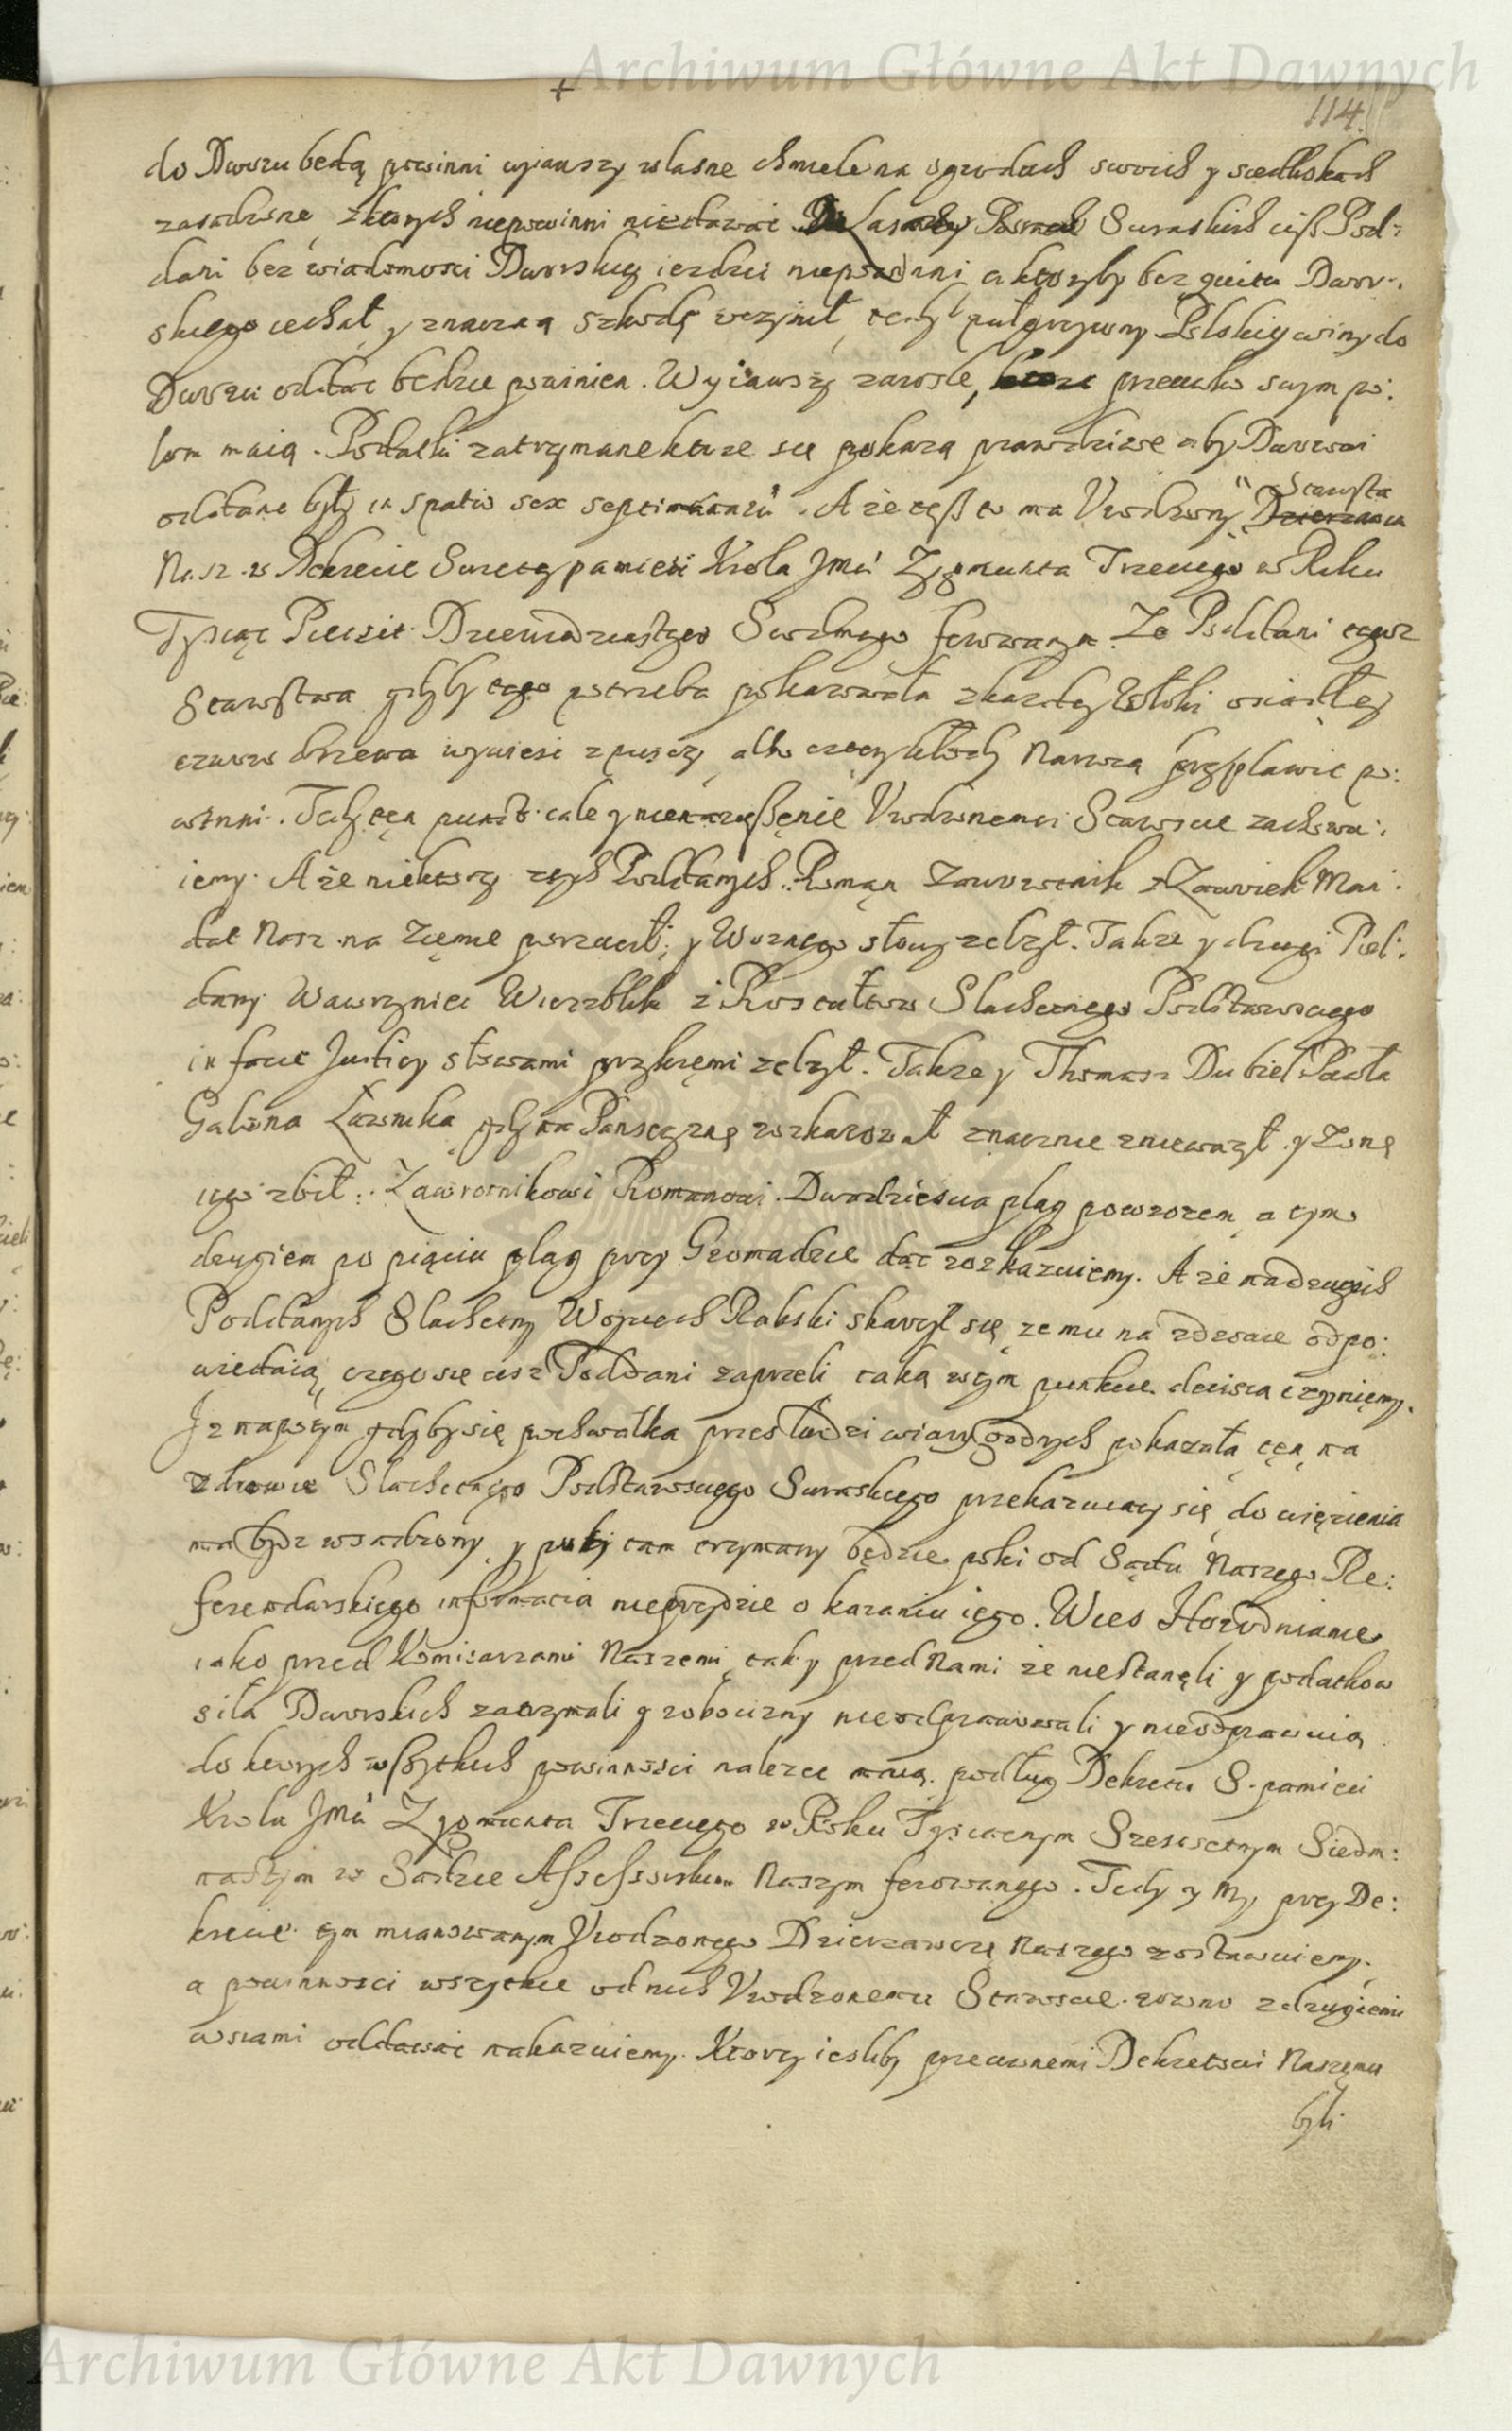 Archiwum Główne Akt Dawnych
114.
do Dworu bedą powinni wyiąwszy własne chmiele na ogrodach swoich y siedliskach
zasadzone, z ktorych niepowinni nic dawać. Do Lasow Suraskich ciß Pod:
dani bez wiadomosci Dworskiey iezdzić niepowinni, a ktoryby bez quitu Dwor:
skiego iechał, y znaczną szkodę uczynił, tedy pułgrzywny Polskiey winy do
Dworu oddac będzie powinien. Wyiąwszy zarosle, ktore przeciwko swym po:
lom maią. Podatki zatrzymane ktore się pokazą prawdziwe aby Dworowi
oddane były in spatio sex septimanarū. A iż teß to ma Vrodzony Starosta Dzierzawca
Nasz w Dekrecie Swietey pamieci Krola Jmci Zygmunta Trzeciego w Roku
Tysiąc Piecset Dziewiedziesiątego Siodmego ferowanym. Ze Poddani tegoz
Starostwa gdyby tego potrzeba pokazowała z kazdey Włoki osiadłey
czworo drzewa wywiesć z puszczy, albo cztery kłody Narwią przypławić po:
winni. Tedy ten punkt cale y nienarußenie Vrodzonemu Staroscie zachowu:
iemy. A iż niektorzy z tych Poddanych. Roman Zawrotnik z Zawiek Man:
dat Nasz na Ziemie porzucił, y Woznego słowy zelzył. Takze y drugi Pod:
dany Wawrzyniec Wierzblik z Roscułtow Slachetnego Podstarosciego
in facie Justicy słowami przykremi zelzył. Takze y Thomasz Dubiel Pawła
Galona Ławnika gdy na Panszczyznę rozkazował znacznie zniewazył y Zonę
iego zbił: Zawrotnikowi Romanowi. Dwadziescia plag powrozem, a tym
drugiem po piąciu plag przy Gromadzie dać rozkazuiemy. A iż na drugich
Poddanych Slachetny Woyciech Rakski skarzył się, ze mu na zdrowie odpo:
wiedaią, czego się ciż Poddani zaprzeli, taką w tym punkcie decisią czyniemy.
Iż napotym gdyby się pochwałka przes ludzi wiary godnych pokazała, ten na
zdrowie Slachetnego Podstarosciego Suraskiego przekazuiący się, do więzienia
ma bydz wsadzony, y poty tam trzymany będzie, poki od Sądu Naszego Re:
ferendarskiego informacia nieprzydzie o karaniu iego. Wies Horodniane
iako przed Komisarzami Naszemi, tak y przed Nami że niestanęli y podatkow
siła Dworskich zatrzymali y robocizny nieodprawowali y nieodprawuią,
do ktorych wßytkich powinnosci nalezec maią. podług Dekretu S. pamieci
Krola Jmci Zygmunta Trzeciego w Roku Tysiącnym Szescsetnym Siedm:
nastym w Sądzie Assessorskim Naszym ferowanego. Tedy y My przy De:
krecie tym mianowanym Vrodzonego Dzierzawcę Naszego zostawuiemy,
a powinnosci wszytkie od nich Vrodzonemu Staroscie rowno z drugiemi
wsiami oddawać nakazuiemy. Ktorzy iesliby przeciwnemi Dekretowi Naszemu
byli
Archiwum Główne Akt Dawnych